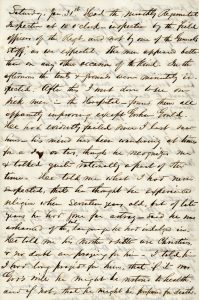 Saturday, Jan 31st Had the monthly Regimental
Inspection at one o'clock inspected by the field
officers of the Regt and not by one of the General
Staff as we expected. The men appeared better
than on any other occasion of the kind. In the
afternoon the tents & grounds were minutely in-
spected. After this I went down to see our
sick men in the Hospital - found them all
apparently improving except
He has evidently failed since I last saw
him. his mind has been wandering at times
for a day or two, though he recognized me
& talked quite rationally a part of the
time. He told me what I had never
suspected, that he thought he experienced
religion when seventeen years old, but of late
years he had gone far astray, said he was
ashamed of the language he had indulged in
He told me his mother & sister are Christians
& no doubt are praying for him. I told him
I had long prayed for him, that if it was
God's will he might be restored to health,
and if not, that he might be prepared for death.